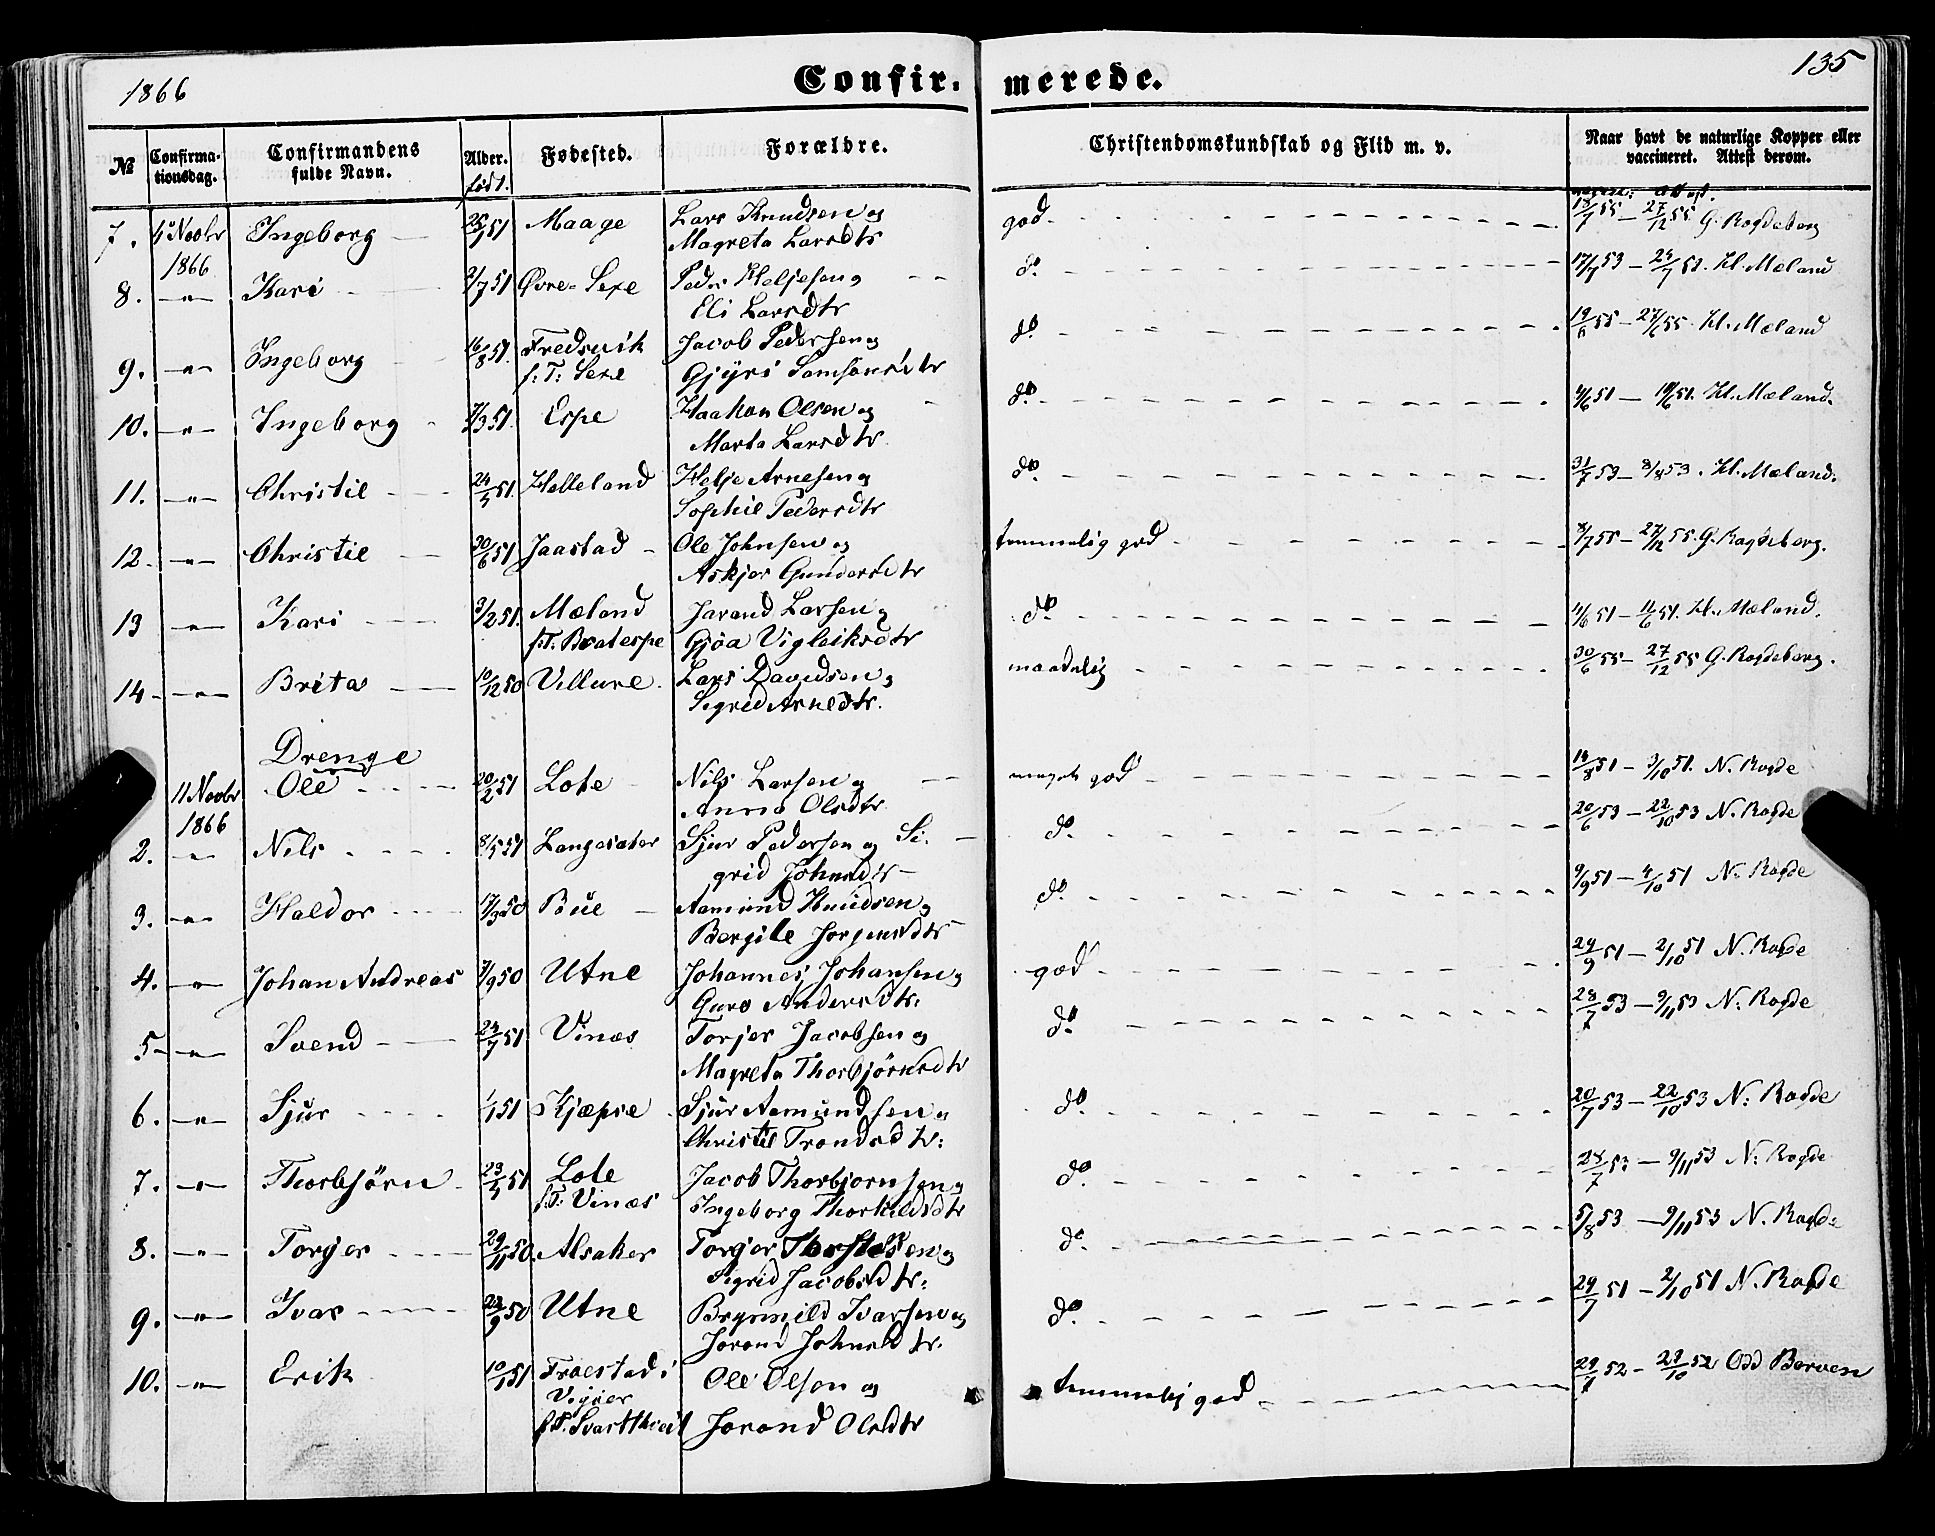 1866
Confirmerede.
135
№
Confirmationsdag.
Confirmandens fulde Navn.
Alder. født.
Fødested.
Forældre.
Christendomskundskab og Flid m. v.
Naar havt de naturlige Kopper eller vaccineret. Attest derom.
7. 4de Novbr 1866 Ingeborg 25/1 51 Maage Lars Knudsen og god 13/7 55 — 27/12 55 G. Rogdeberg
Magreta Larsdtr
8. —"— Kari 2/7 51 Øvre-Sexe Peder Heljesen og do 17/7 53 — 24/7 53. H. Mæland
Eli Larsdtr
9. —"— Ingeborg 16/8 51. Fredsvik Jacob Pedersen og do 19/6 55 — 27/6 55. H. Mæland
f: T: Sexe Gjyri Samsonsdtr
10. —"— Ingeborg 7/3 51. Espe Haakon Olsen og do 4/6 51 — 11/6 51. H. Mæland.
Marta Larsdtr.
11. —"— Christie 24/5 51. Helleland Helje Arnesen og do 31/7 53 — 8/8 53. H. Mæland.
Sophie Pedersdtr
12. —"— Christie 30/6 51 Jaastad Ole Johnsen og temmelig god 8/7 55 — 27/12 55. G. Rogdeberg.
Askjer Gundersdtr
13 —"— Kari 3/2 51. Mæland Jarand Larsen og do 4/6 51 — 11/6 51. H. Mæland.
f.T. Bratespe Gjøa Vigleiksdtr
14. —"— Brita 10/12 50 Villure. Lars Davidsen og maadelig 30/6 55 — 27/12 55 G. Rogdeberg.
Sigrid Arnesdtr.
Drenge
11 Novbr 1866 Ole 20/2 51 Lote Nils Larsen og meget god 14/8 51 — 3/10 51. N. Rogde
Anna Olsdtr
2. —"— Nils 8/5 51 Langesater Sjur Pedersen og Si- do. 20/6 53 — 22/10 53 N. Rogde
grid Johnsdtr
3. —"— Haldor 17/3 50 Bue Aamund Knudsen og do. 9/9 51 — 4/10 51 N. Rogde
Bergile Jorgensdtr
4. —"— Johan Andreas 7/9 50 Utne Johannes Johansen og god 24/9 51 — 2/10 51 N. Rogde
Guro Andersdtr.
5. —"— Svend 24/7 51 Vinæs Torjer Jacobsen og do 28/7 53 — 9/11 53 N: Rogde
Magreta Thorbjörnsdtr
6. —"— Sjur 1/1 51 Kjæpse Sjur Aamundsen og do. 20/7 53 — 22/10 53 N: Rogde
Christie Trondsdtr:
7. —"— Thorbjörn 23/4 51 Lote Jacob Thorbjornsen og do. 28/7 53 — 9/11 53 N: Rogde
f.T: Vinæs Ingeborg Thorkildsdtr
8. —"— Torger 29/11 50. Alsaker Torger Thorstensen og do. 5/8 53 — 9/11 53 N. Rogde
Sigrid Jacobsdtr.
9. —"— Ivar 23/9 50 Utne Brynnild Ivarsen og do. 29/7 51 — 2/10 51 N. Rogde
Jorand Johnsdtr.
10. —"— Erik 10/1 51 Froestad i Ole Olson og temmelig god 29/7 52 — 27/10 52 Odd Berven
Vigøer
f.T. Svartthveit Jorand Olsdtr